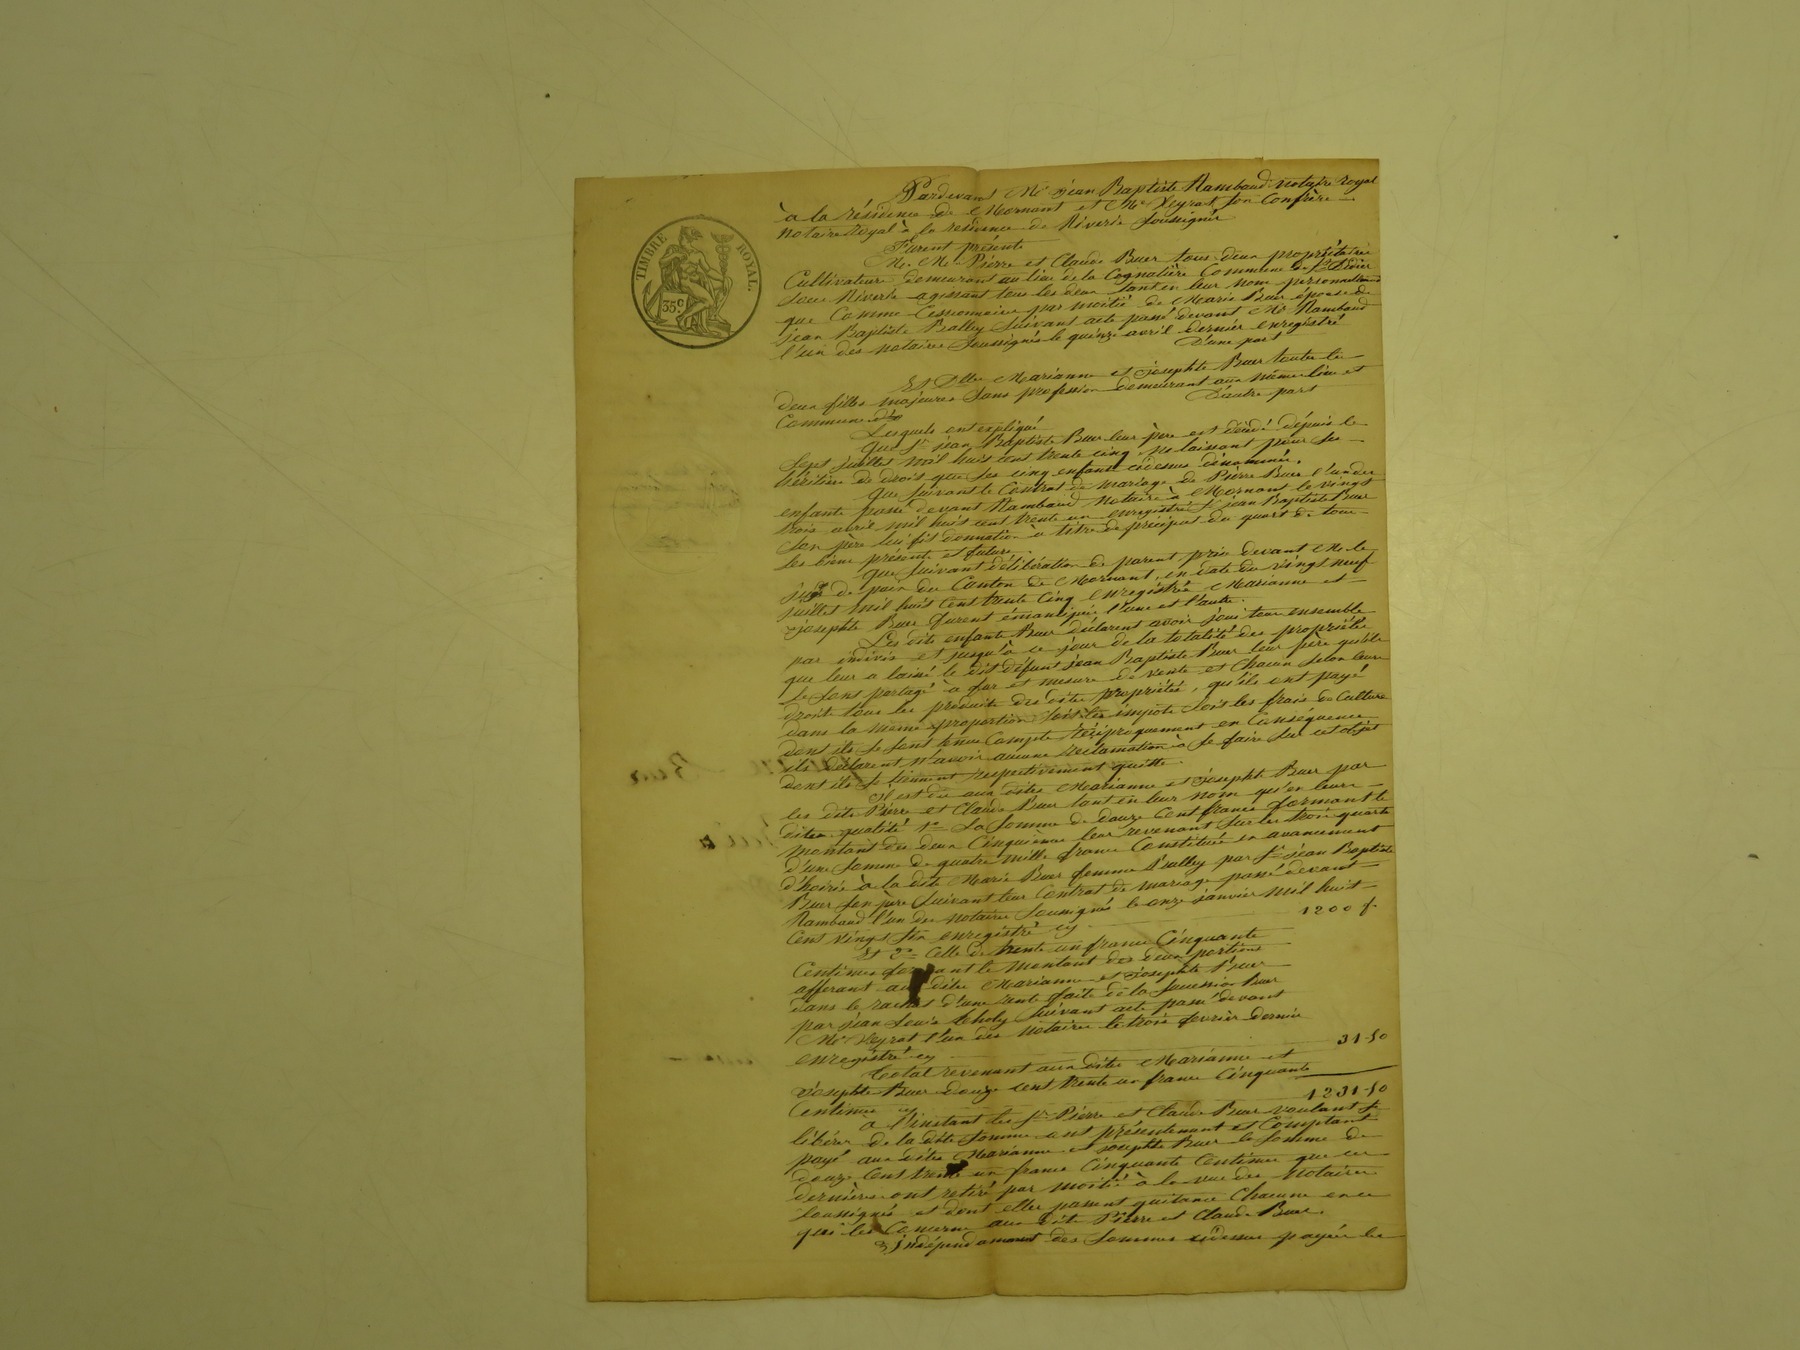 TIMBRE ROYAL.
35c
Pardevant Me jean Baptiste Rambaud notaire royal
à la résidence de Mornant et Me Veyrat son Confrère
notaire Royal à la résidence de Riverie soussignés
Furent présents
Mrs Pierre et Claude Buer tous deux propriétaires
Cultivateurs demeurant au lieu de la Cognatière Commune de St Didier
sous Riverie agissant tous les deux tant en leur nom personnellement
que Comme Cessionnaires par moitié de Marie Buer épouse de
jean Baptiste Balley suivant acte passé devant Me Rambaud
l'un des notaires soussignés le quinze avril dernier enregistré
D'une part
Et Dlles Marianne et Josephte Buer toutes les
deux filles majeures sans profession demeurant aux même lieu et
Commune
D'autre part
Lesquels ont expliqué
Que Sr jean Baptiste Buer leur père est décédé dépuis le
sept juillet mil huit cent trente cinq ne laissant pour ses
héritiers de droit que ses cinq enfants cidessus dénommés.
Que suivant le Contrat de mariage de Pierre Buer l'un des
enfants passé devant Rambaud Notaire à Mornant le vingt
trois avril mil huit cent trente un enregistré Sr jean Baptiste Buer
son père lui fit donnation à titre de préciput du quart de tous
ses biens présents et futurs.
Que suivant délibération de parents prise devant Mr le
juge de paix du Canton de Mornant, en date du vingt neuf
juillet mil huit cent trente cinq enregistrée Marianne et
Josephte Buer furent émancipées l'une et l'autre.
Les dits enfants Buer déclarent avoir joui tous ensemble
par indivis et jusqu'à ce jour de la totalité des propriétés
que leur a laissé le dit défunt jean Baptiste Buer leur père qu'ils
se sont partagé à fur et mesure de vente et chacun selon leurs
droits tous les produits des dites propriétés, qu'ils ont payé
dans la même proportion soit les impots soit les frais de Culture
dont ils se sont tenus Compte réciproquement en Conséquence
ils déclarent n'avoir aucune réclamation à se faire sur cet objet
dont ils se tiennent respectivement quittes.
Il est dû aux dites Marianne et Josephte Buer par
les dits Pierre et Claude Buer tant en leur nom qu'en leurs
dites qualités 1o La somme de douze Cent francs formant le
montant des deux Cinquièmes leur revenant sur les trois quarts
d'une somme de quatre mille francs Constituée en avancement
d'hoirie à la dite Marie Buer femme Balley par Sr jean Baptiste
Buer son père suivant leur Contrat de mariage passé devant
Rambaud l'un des notaires soussignés le onze janvier mil huit
Cent vingt enregistré cy 1200 f
Et 2o Celle de trente un francs Cinquante
Centimes formant le montant des deux portions
afférant aux dites Marianne et Josephte Buer
dans le rachat d'une rente faite de la succession Buer
par jean Louis suivant acte passé devant
Me Veyrat l'un des notaires le trois février dernier
enregistré cy 31-50
Total revenant aux dites Marianne et
Josephte Buer douze cent trente un francs Cinquante
Centimes cy 1231-50
A l'instant les Srs Pierre et Claude Buer voulant se
libérer de la dite somme ont présentement et Comptant
payé aux dites Marianne et Josephte Buer la somme de
douze Cent trente un francs Cinquante Centimes que ces
dernières ont retiré par moitié à la vue des Notaires
soussignés et dont elles passent quittance Chacune en ce
qui les Concerne aux dits Pierre et Claude Buer.
Indépendamment des sommes cidessus payées les